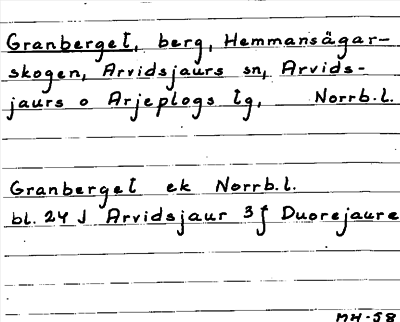 Granberget, berg, Hemmansägar-
skogen, Arvidsjaurs sn, Arvids-
jaurs o Arjeplogs lg, Norrb.l.
Granberget ek Norrb.l.
bl. 24 J Arvidsjaur 3f Duorejaure
MH-58